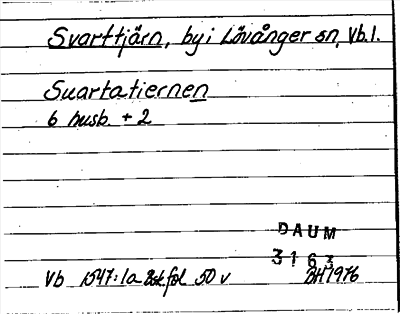 Svarttjärn, by i Lövånger sn, Vb.l.
Suartatiernen
6 husb. + 2
DAUM
3163
Vb 1547:1a Bsk fol 50 v
BH 1976